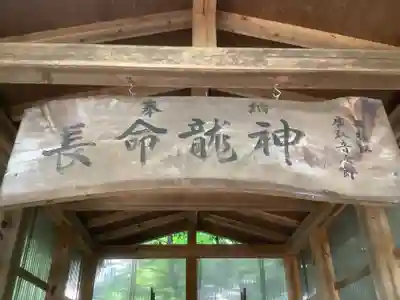 奉納
長命龍神